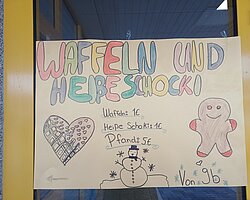 WAFFELN UND
HEIßE SCHOCKI
Waffeln 1€
Heiße Schoki 1€
Pfand: 5€
Von 9b